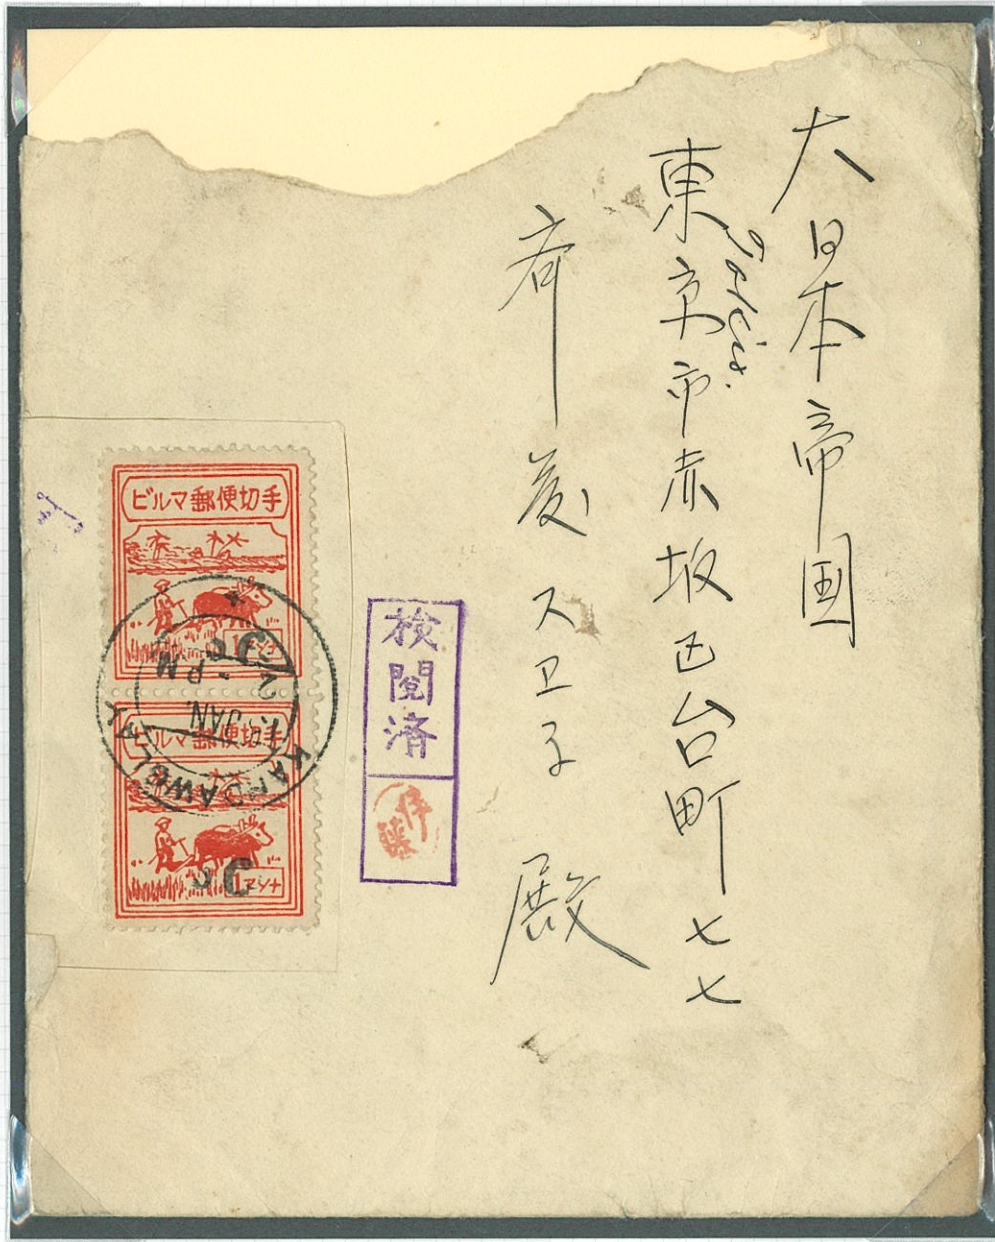 大日本帝国
東京市赤坂区台町七七
斉藤スエ子 殿
検閲済
伊藤
ビルマ郵便切手
1センナ
5C
ビルマ郵便切手
1センナ
5C
KANDAWGLAY
JAN.
PM